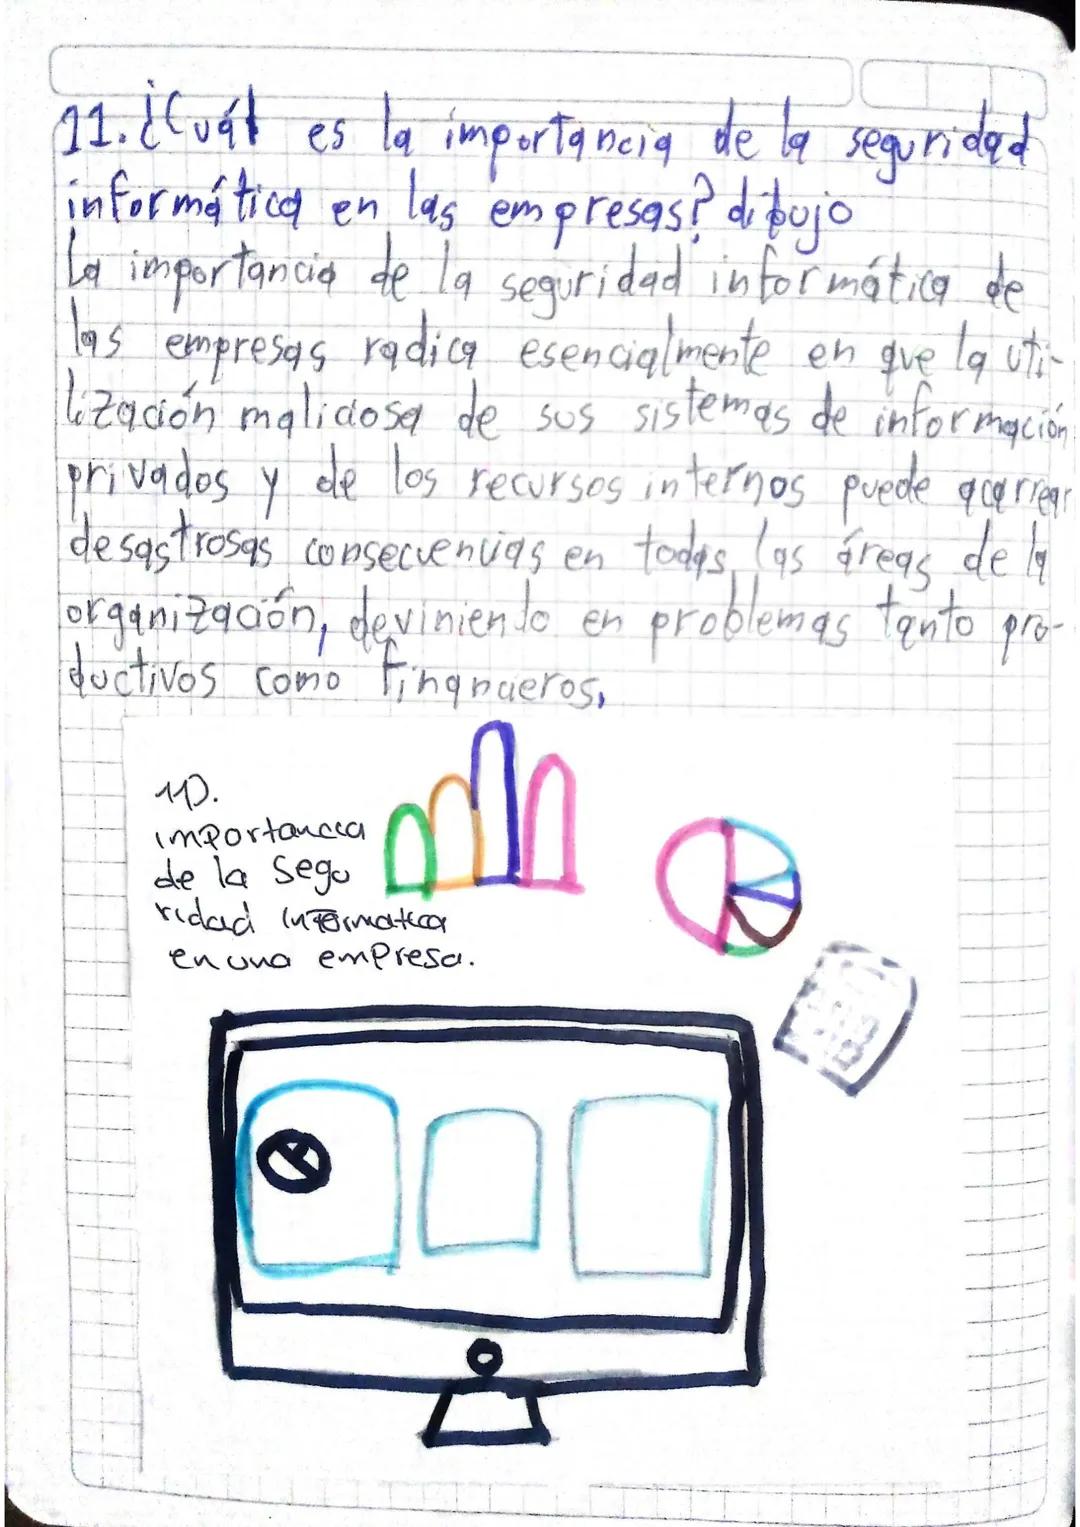 11. ¿Cuál es la importancia de la seguridad
informática en las empresas? dibujo
La importancia de la seguridad informática de
las empresas radica esencialmente en que la uti-
lización maliciosa de sus sistemas de información
privados y de los recursos internos puede acarrear
desastrosas consecuencias en todas las áreas de la
organización, deviniendo en problemas tanto pro-
ductivos como financieros,
11).
importancia
de la Segu
ridad informatica
en una empresa.